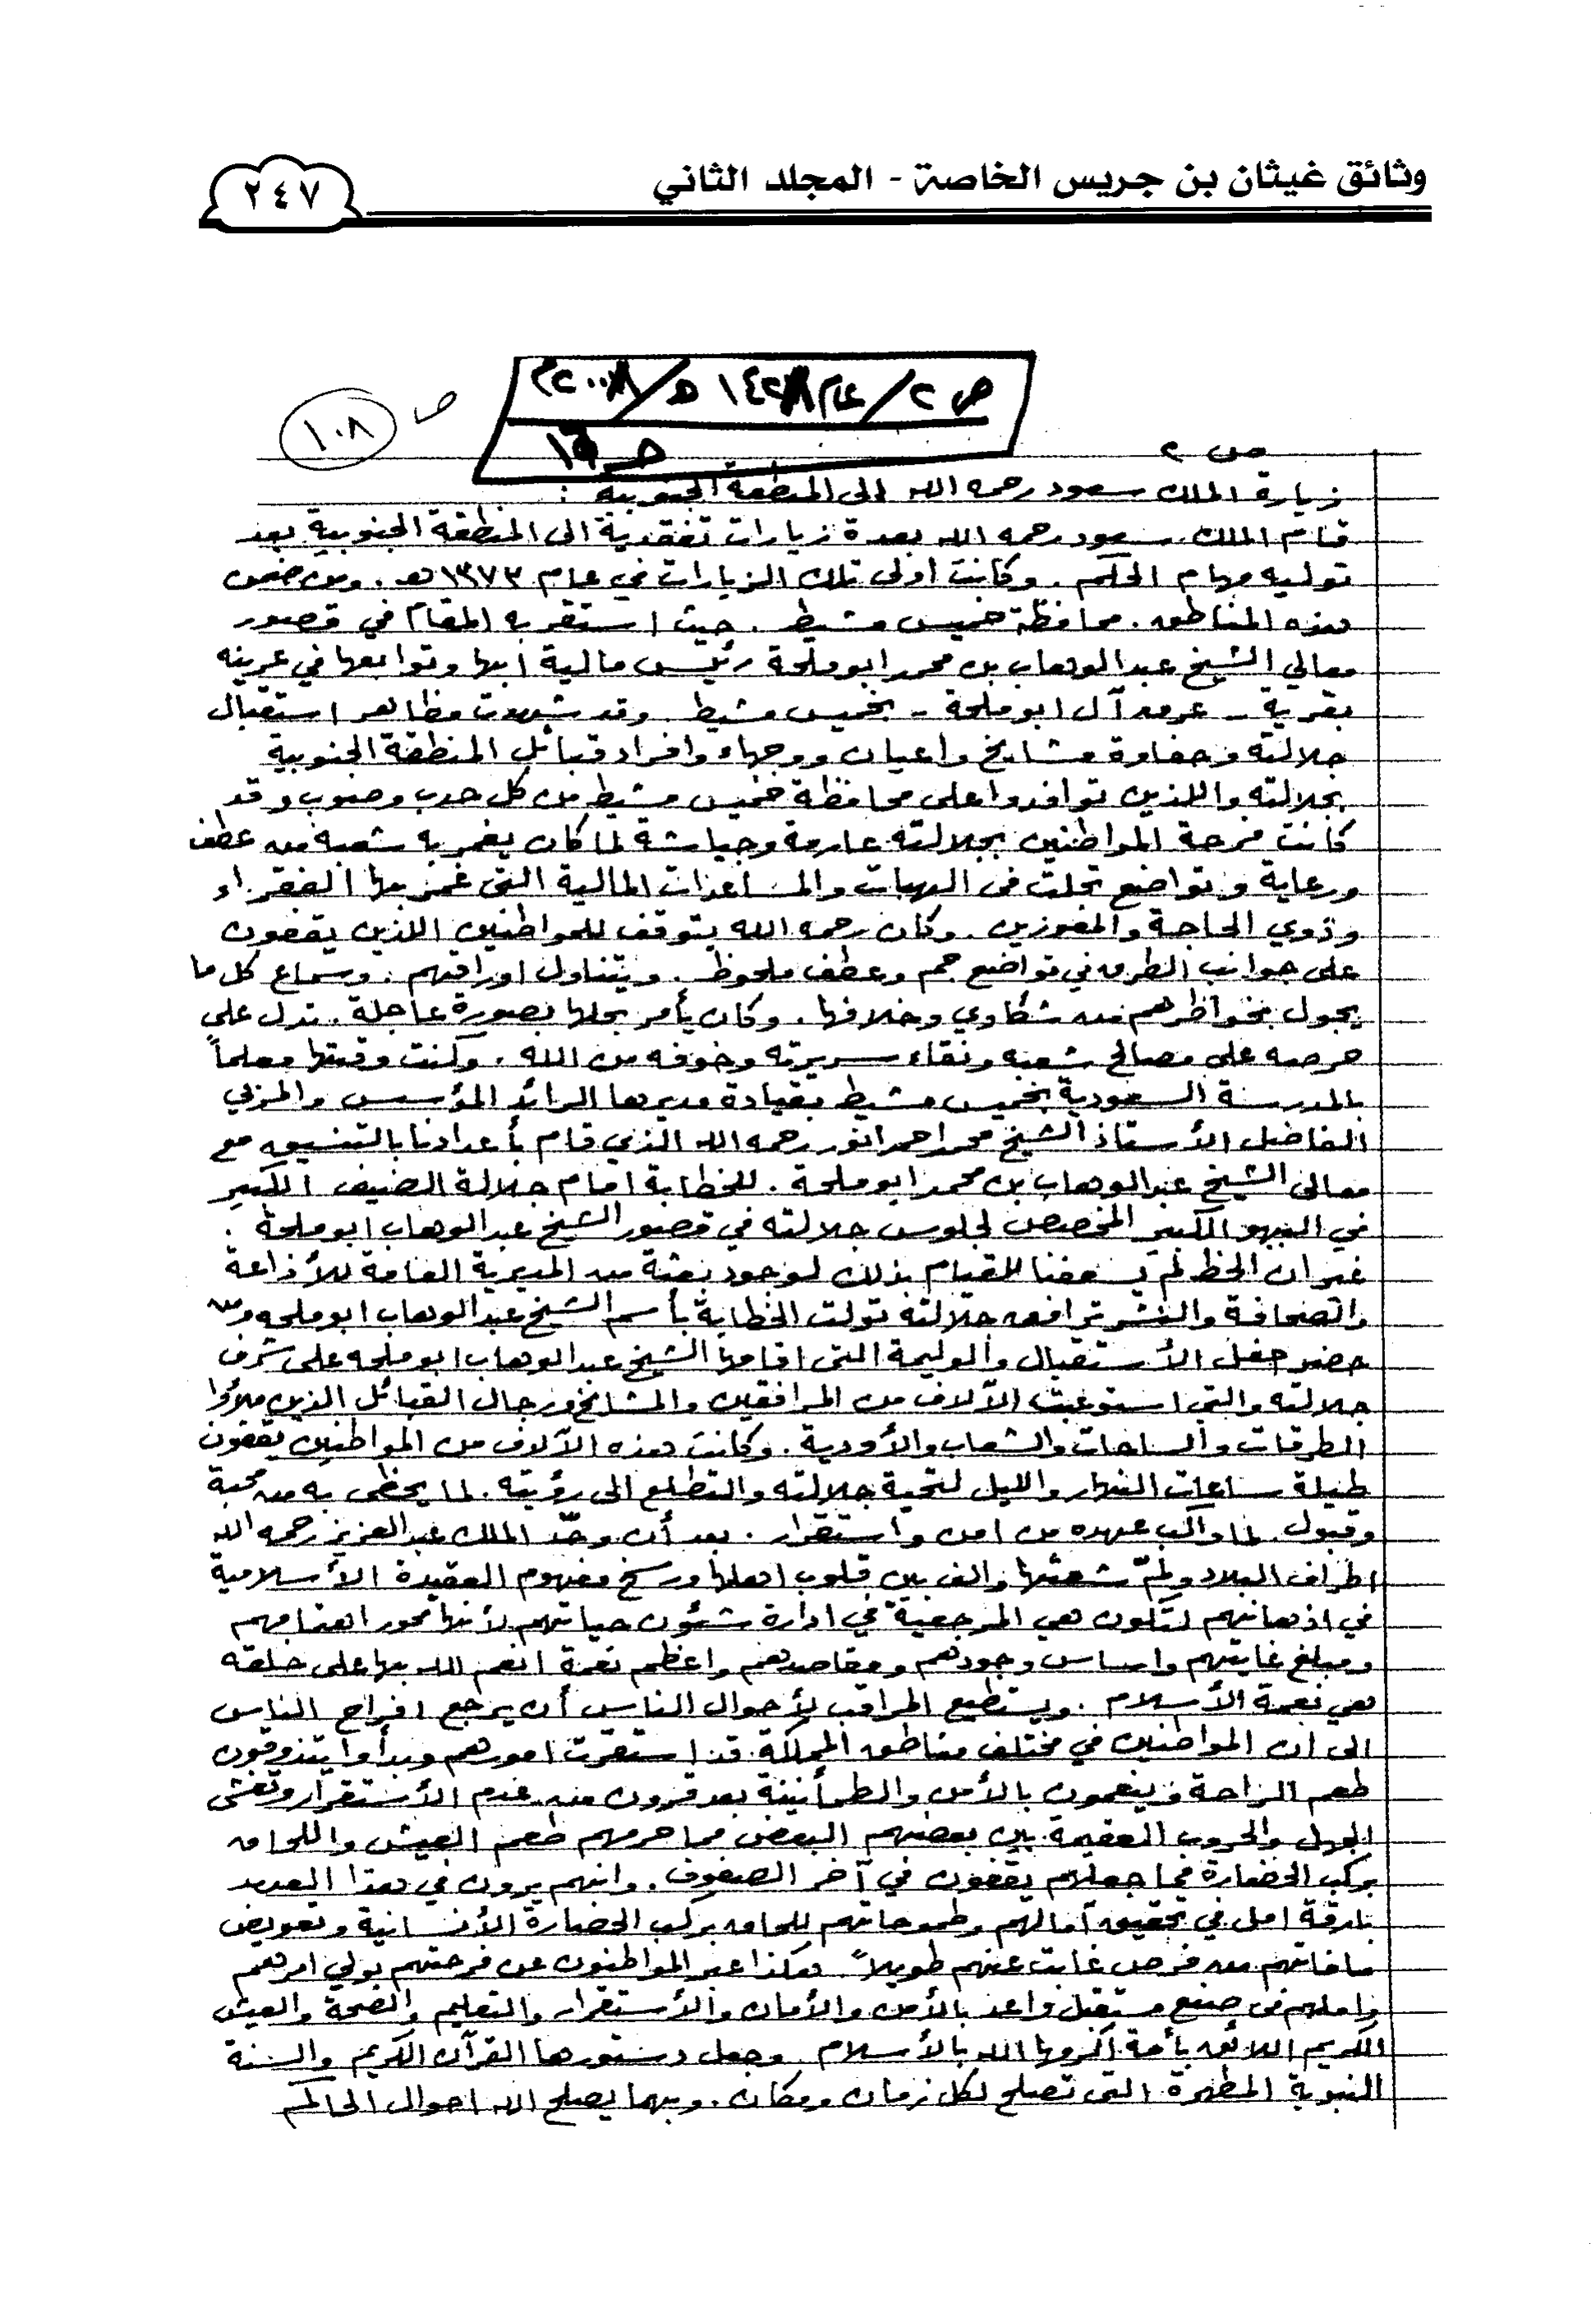 وثائق غيثان بن جريس الخاصة - المجلد الثاني
٢٤٧
ص ٢/عام ١٤٢٨هـ/٢٠٠٨م
ص
١٠٨
ص ٢
زيارة الملك سعود رحمه الله الى المنطقة الجنوبية :
قام الملك سعود رحمه الله بعدة زيارات تفقدية الى المنطقة الجنوبية بعد
توليه مهام الحكم . وكانت اولى تلك الزيارات في عام ١٣٧٣هـ . ومن ضمن
هذه المناطق . محافظة خميس مشيط . حيث استقر به المقام في قصور
معالي الشيخ عبدالوهاب بن محمد ابوملحة رئيس مالية ابها وتوابعها في عرينه
بقرية - عرق آل ابوملحة - بخميس مشيط . وقد شهدت مظاهر استقبال
جلالته وحفاوة مشايخ واعيان ووجهاء وافراد قبائل المنطقة الجنوبية
بجلالته واللذين توافدوا على محافظة خميس مشيط من كل حدب وصوب وقد
كانت فرحة المواطنين بجلالته عارمة وجياشة لما كان يغمر به شعبه من عطف
ورعاية وتواضع تجلت في الهبات والمساعدات المالية التي غمر بها الفقراء
وذوي الحاجة والمعوزين . وكان رحمه الله يتوقف للمواطنين اللذين يقفون
على جوانب الطرق في تواضع جم وعطف ملحوظ . ويتناول اوراقهم . وسماع كل ما
يجول بخواطرهم من شكاوي وخلافها . وكان يأمر بحلها بصورة عاجلة . تدل على
حرصه على مصالح شعبه ونقاء سريرته وخوفه من الله . وكنت وقتها معلماً
بالمدرسة السعودية بخميس مشيط بقيادة مديرها الرائد المؤسس والمربي
الفاضل الأستاذ الشيخ محمد احمد انور رحمه الله الذي قام بأعدادنا بالتنسيق مع
معالى الشيخ عبدالوهاب بن محمد ابوملحة . للخطابة امام جلالة الضيف الكبير
في البهو الكبير المخصص لجلوس جلالته في قصور الشيخ عبدالوهاب ابوملحة .
غير ان الحظ لم يسعفنا للقيام بذلك لوجود بعثة من المديرية العامة للأذاعة
والصحافة والنشر ترافق جلالته تولت الخطابة بأسم الشيخ عبدالوهاب ابوملحه ومن
حضر حفل الأستقبال والوليمة التي اقامها الشيخ عبدالوهاب ابوملحه على شرف
جلالته والتي استوعبت الآلاف من المرافقين والمشايخ ورجال القبائل الذين ملأوا
الطرقات والساحات والشعاب والأودية . وكانت هذه الآلاف من المواطنين يقفون
طيلة ساعات النهار والليل لتحية جلالته والتطلع الى رؤيته . لما يحظى به من محبة
وقبول . لما واكب عهده من امن واستقرار . بعد أن وحّد الملك عبدالعزيز رحمه الله
اطراف البلاد ولمّ شعثها والف بين قلوب اهلها ورسخ مفهوم العقيدة الأسلامية
في اذهانهم لتكون هي المرجعية في ادارة شئون حياتهم لأنها محور اهتمامهم
ومبلغ غايتهم واساس وجودهم ومقاصدهم واعظم نعمة انعم الله بها على خلقه
هي نعمة الأسلام . ويستطيع المراقب لأحوال الناس أن يرجع افراح الناس
الى ان المواطنين في مختلف مناطق المملكة قد استقرت امورهم وبدأوا يتذوقون
طعم الراحة وينعمون بالأمن والطمأنينة بعد قرون من عدم الأستقرار وتفشى
الجهل والحروب العقيمة بين بعضهم البعض مما حرمهم طعم العيش واللحاق
بركب الحضارة مما جعلهم يقفون في آخر الصفوف . وانهم يرون في هذا العهد
بارقة امل في تحقيق آمالهم وطموحاتهم للحاق بركب الحضارة الأنسانية وتعويض
مافاتهم من فرص غابت عنهم طويلاً . هكذا عبر المواطنون عن فرحتهم بولي امرهم
واملهم في صنع مستقبل واعد بالأمن والأمان والأستقرار والتعليم والصحة والعيش
الكريم اللائق بأمة اكرمها الله بالأسلام . وجعل دستورها القرآن الكريم والسنة
النبوية المطهرة التي تصلح لكل زمان ومكان . وبهما يصلح الله احوال الحاكم